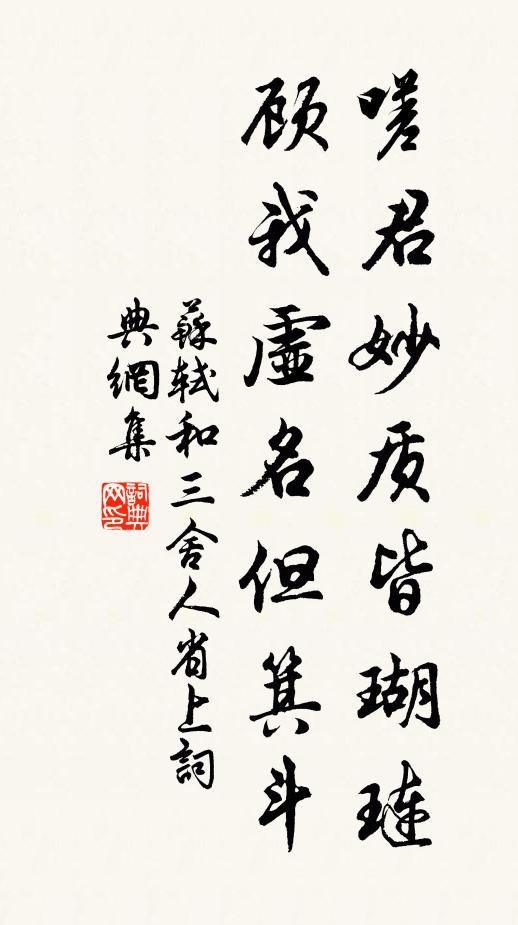 嗟君妙质皆瑚琏
顾我虚名但箕斗
蘇軾和三舍人省上詞
典網集
詞典
网印